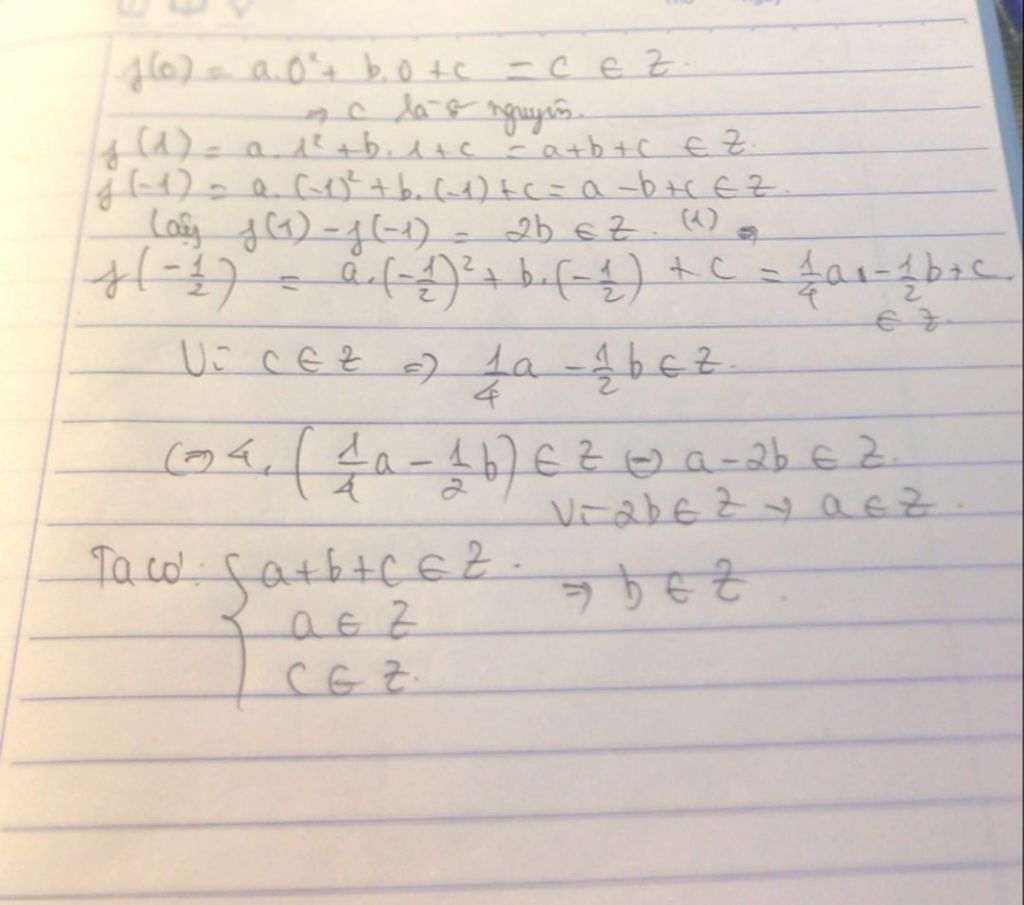 f(0) = a.0² + b.0 + c = c ∈ Z.
⇒ c là số nguyên.
f(1) = a.1² + b.1 + c = a+b+c ∈ Z.
f(-1) = a.(-1)² + b.(-1) + c = a - b + c ∈ Z.
Lấy f(1) - f(-1) = 2b ∈ Z. (1) ⇒
f(-1/2) = a.(-1/2)² + b.(-1/2) + c = 1/4 a - 1/2 b + c
∈ Z.
Vì c ∈ Z ⇒ 1/4 a - 1/2 b ∈ Z.
(⇒ 4. (1/4 a - 1/2 b) ∈ Z ⇔ a - 2b ∈ Z.
Vì 2b ∈ Z → a ∈ Z.
Ta có: { a+b+c ∈ Z. ⇒ b ∈ Z.
a ∈ Z
c ∈ Z.